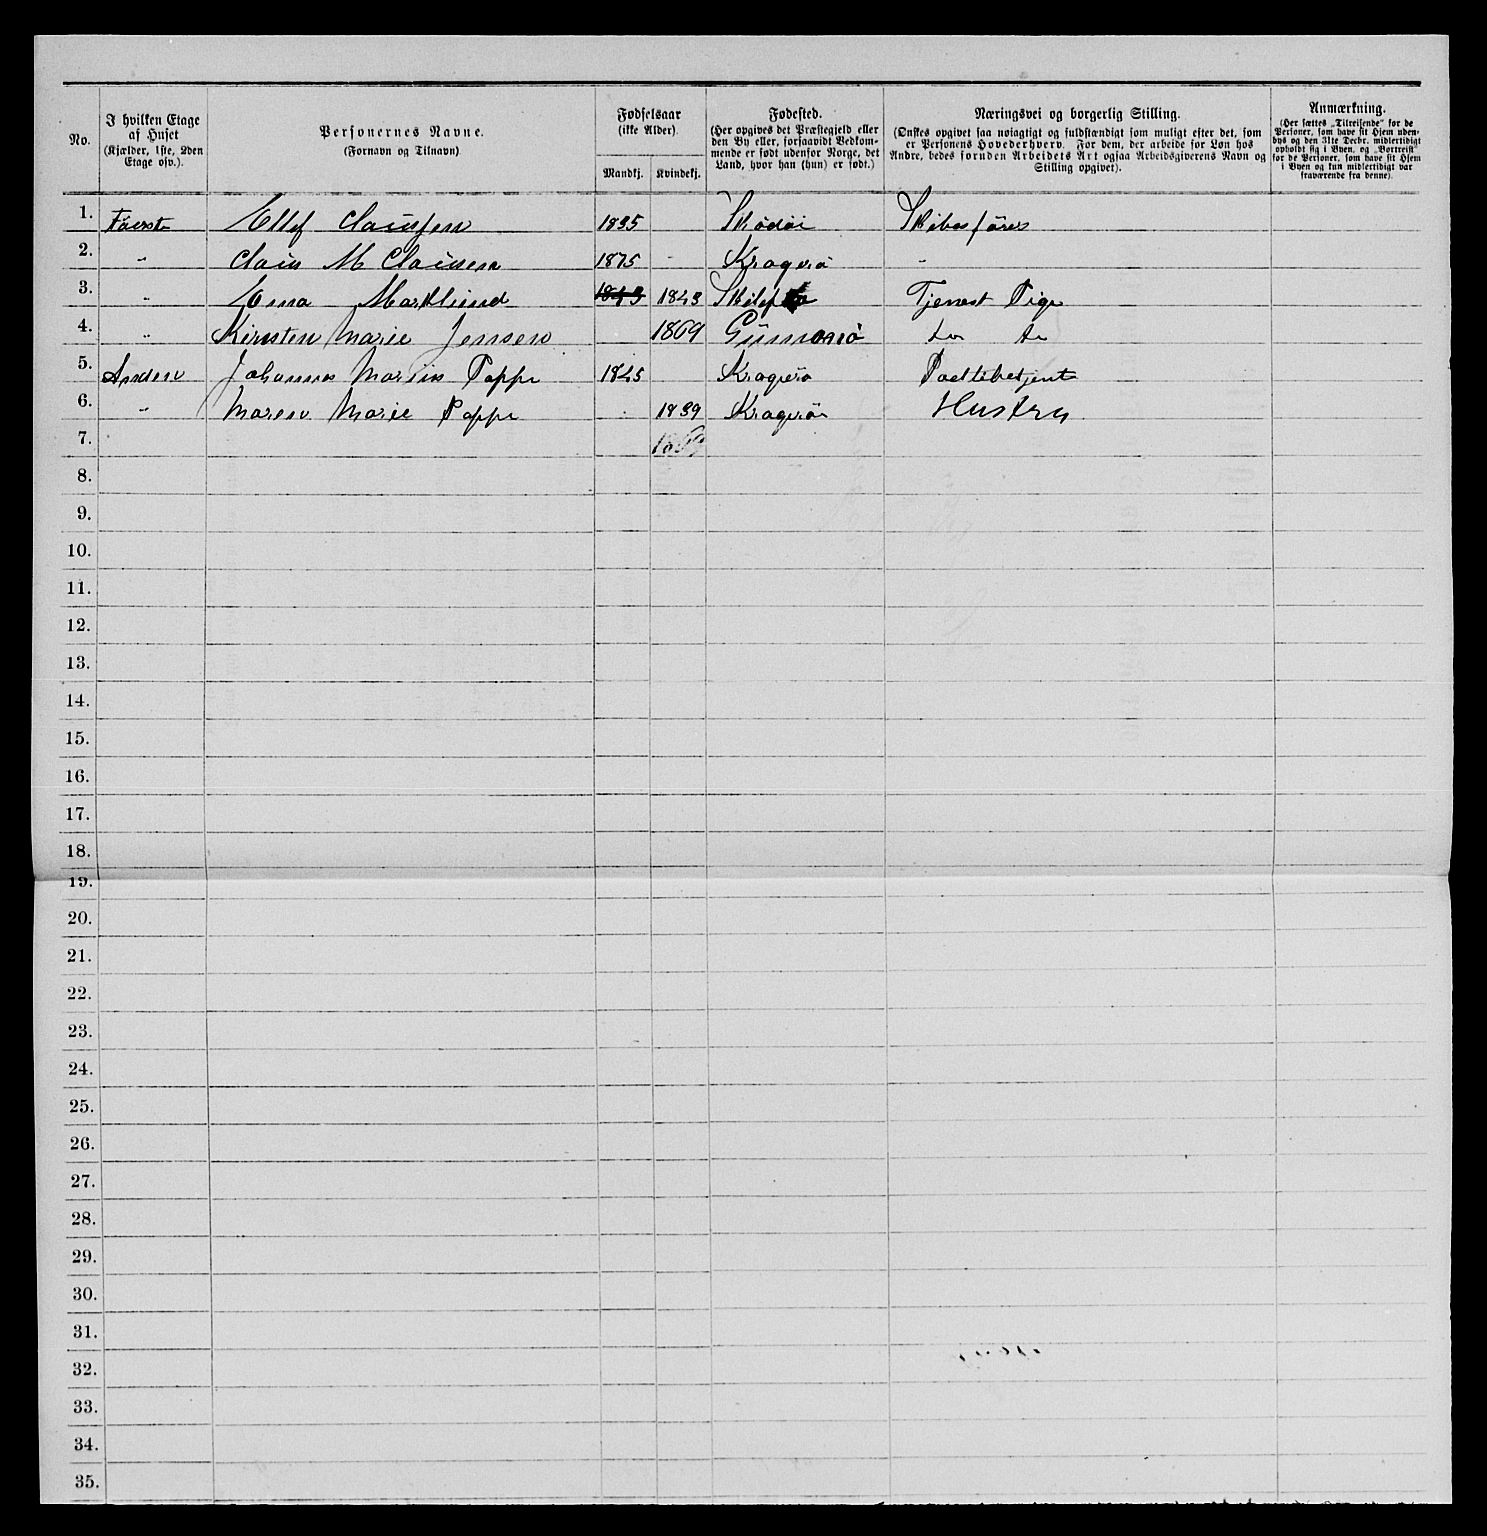 No. | I hvilken Etage af Huset (Kjælder, 1ste, 2den Etage osv.). | Personernes Navne. (Fornavn og Tilnavn) | Fødselsaar (ikke Alder) Mandkj. | Kvindekj. | Fødested. (Her opgives det Præstegjeld eller den By eller, forsaavidt Vedkommende er født udenfor Norge, det Land, hvor han (hun) er født.) | Næringsvei og borgerlig Stilling. (Ønskes opgivet saa nøiagtigt og fuldstændigt som muligt efter det, som er Personens Hovederhverv. For dem, der arbeide for Løn hos Andre, bedes foruden Arbeidets Art ogsaa Arbeidsgiverens Navn og Stilling opgivet). | Anmærkning. (Her sættes „Tilreisende" for de Personer, som have sit Hjem udenbys og den 31te Decbr. midlertidigt opholdt sig i Byen, og „Bortreist" for de Personer, som have sit Hjem i Byen og kun midlertidigt var fraværende fra denne).
1. Förste Ellef Claussen 1835 Skådöi Skibsförer
2. " Claus M Clausen 1875 - Kragerö "
3. " Ema Marklund 1843 1843 Tjenest Pige
4. " Kirsten Marie Jensen 1869 Gumöiö do do
5. Anden Johannes Marius Poppe 1845 Kragerö
6. " Maren Marie Poppe 1839 Kragerö Hustru
7.
8.
9.
10.
11.
12.
13.
14.
15.
16.
17.
18.
19.
20.
21.
22.
23.
24.
25.
26.
27.
28.
29.
30.
31.
32.
33.
34.
35.